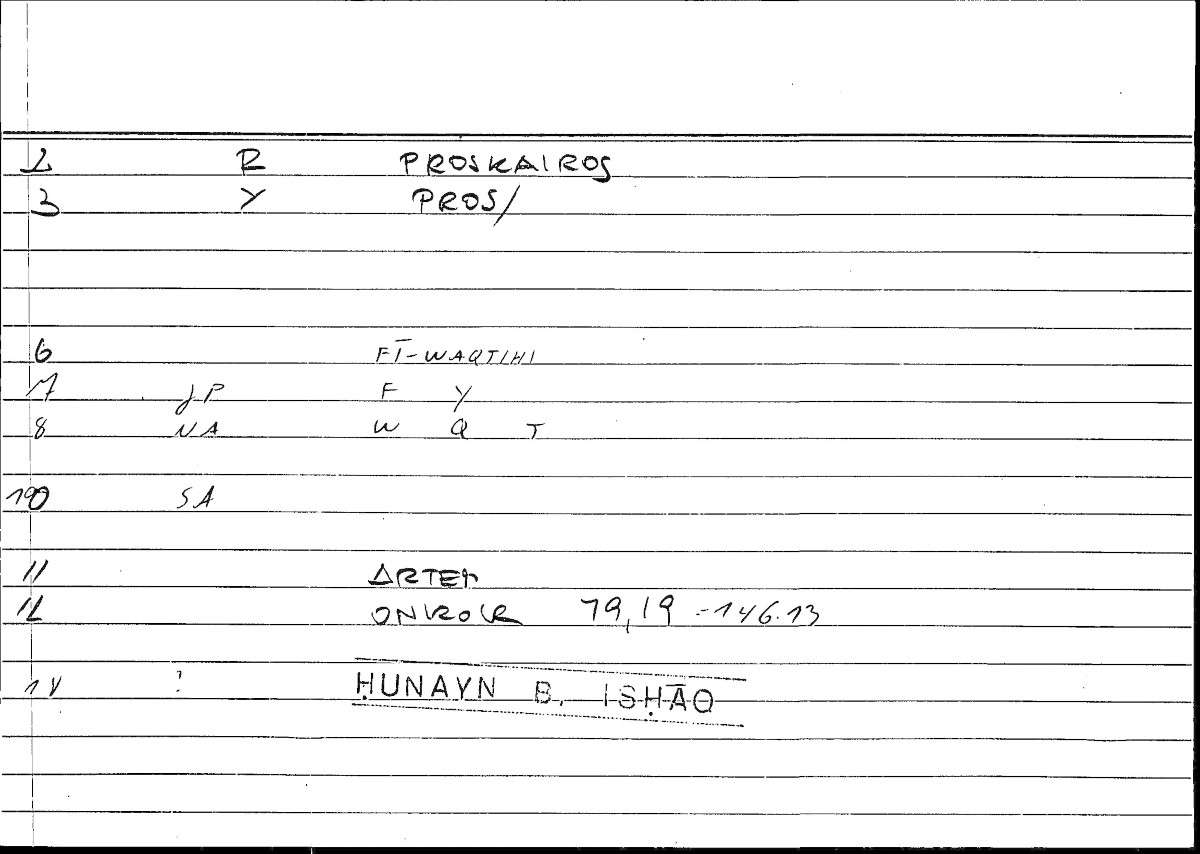 2 R PROSKAIROS
3 Y PROS/
6 FĪ-WAQTIHI
7 JP F Y
8 NA W Q T
10 SA
11 ARTEM
12 ONIROCR 79,19 = 146.13
14 ? ḤUNAYN B. ISḤĀQ